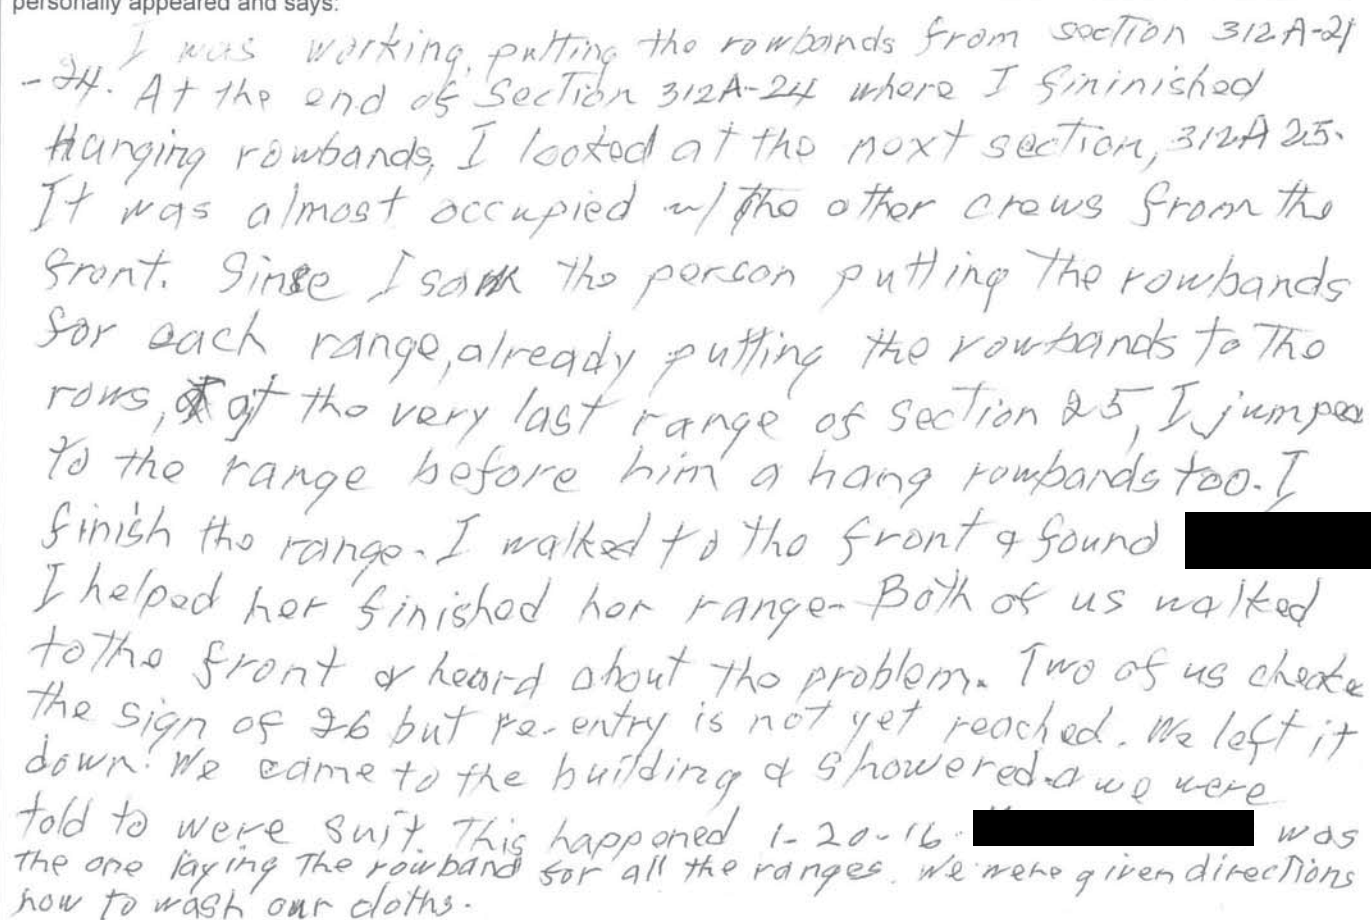 personally appeared and says:
I was working, putting the rowbands from section 312A-21
-24. At the end of Section 312A-24 where I fininished
Hanging rowbands, I looked at the next section, 312A 25.
It was almost occupied w/ the other crews from the
front. Since I saw the person putting the rowbands
for each range, already putting the rowbands to the
rows, at the very last range of section 25, I jumped
to the range before him a hang rowbands too. I
finish the range. I walked to the front & found
I helped her finished her range. Both of us walked
to the front & heard about the problem. Two of us checke
the sign of 26 but re-entry is not yet reached. We left it
down. We came to the building & showered & we were
told to were suit. This happened 1-20-16. was
the one laying the rowband for all the ranges. We were given directions
how to wash our cloths.